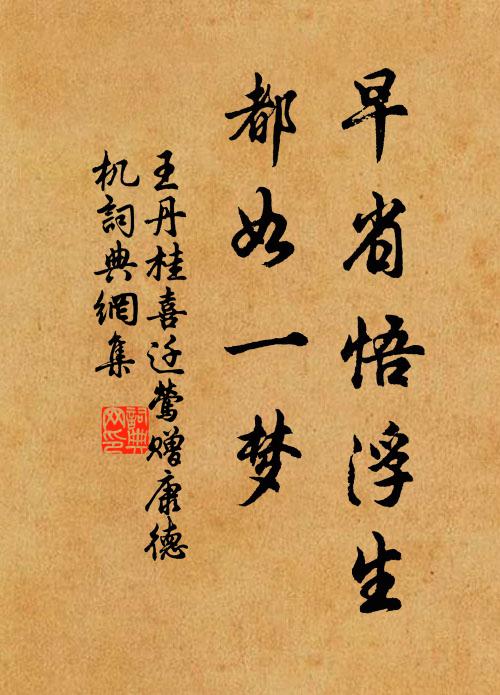 早省悟浮生
都如一梦
王丹桂喜迁莺赠康德
机詞典網集
詞典
网印